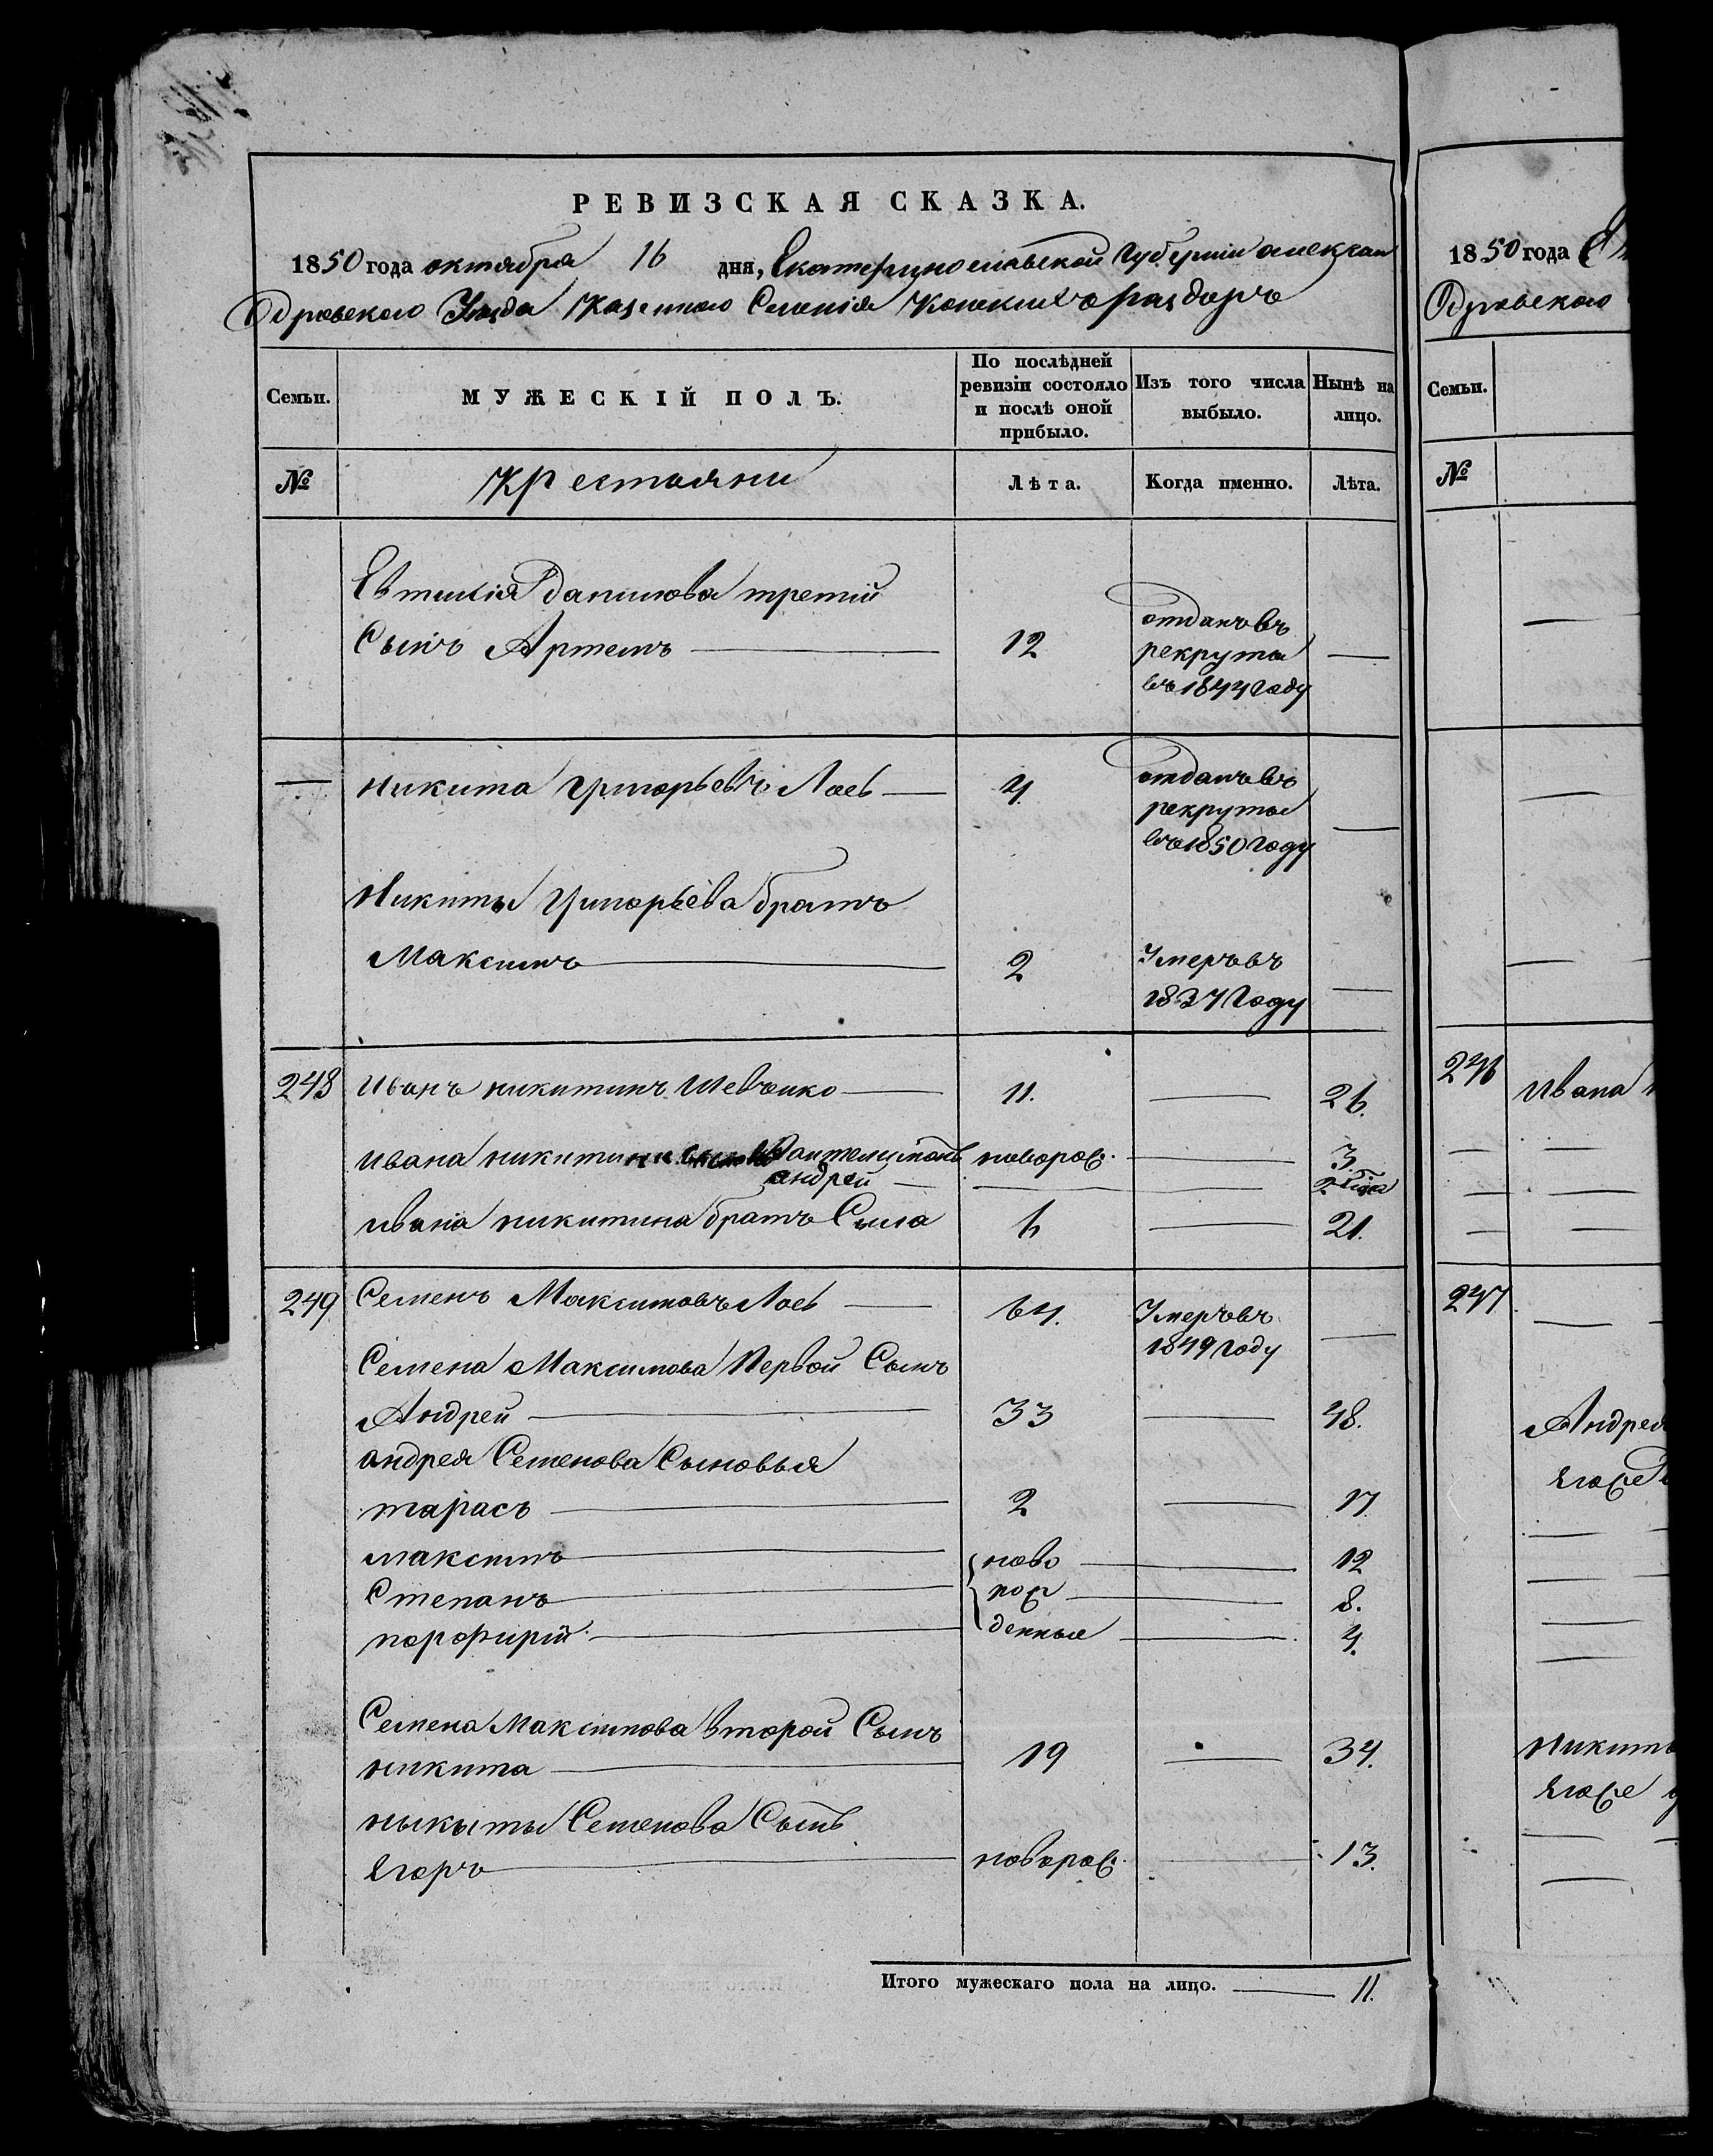 РЕВИЗСКАЯ СКАЗКА.
1850 года октября 16 дня, Екатеринославской Губернии Алексан
дровского Уезда Казенного Селения Конскихъ раздоръ
Семьи.
МУЖЕСКІЙ ПОЛЪ.
По послѣдней ревизіи состояло и послѣ оной прибыло.
Изъ того числа выбыло.
Нынѣ на лицо.
№
Крестьяни
Лѣта.
Когда именно.
Лѣта.
Евтихія Данилова третій
Сынъ Артемъ 12 отданъ въ рекруты въ 1844 году —
— Никита Григорьевъ Лоев 4. отданъ въ рекруты въ 1850 году —
Никиты Григорьева братъ
Максимъ 2 Умеръ въ 1837 году —
248 Иванъ никитинъ Шевченко 11. — 26.
Ивана никитина сыновья Пантелимонъ новорож. — 3.
андрей — — 2. года
Ивана никитина братъ Сыла 6 — 21.
249 Семенъ Максимовъ Лоев 64. Умеръ въ 1849 году —
Семена Максимова Первой Сынъ
Андрей 33 — 48.
андрея Семенова Сыновья
тарасъ 2 — 17
максимъ ново — 12
Степанъ рож — 8.
порфирій денные — 4.
Семена Максимова второй Сынъ
никита 19 — 34.
ныкыты Семенова Сынъ
Егоръ новорож. — 13.
Итого мужескаго пола на лицо. — 11.
1850 года
дровского
Семьи.
№
246 Ивана
247
Андрея
Егоже
Никиты
Егоже